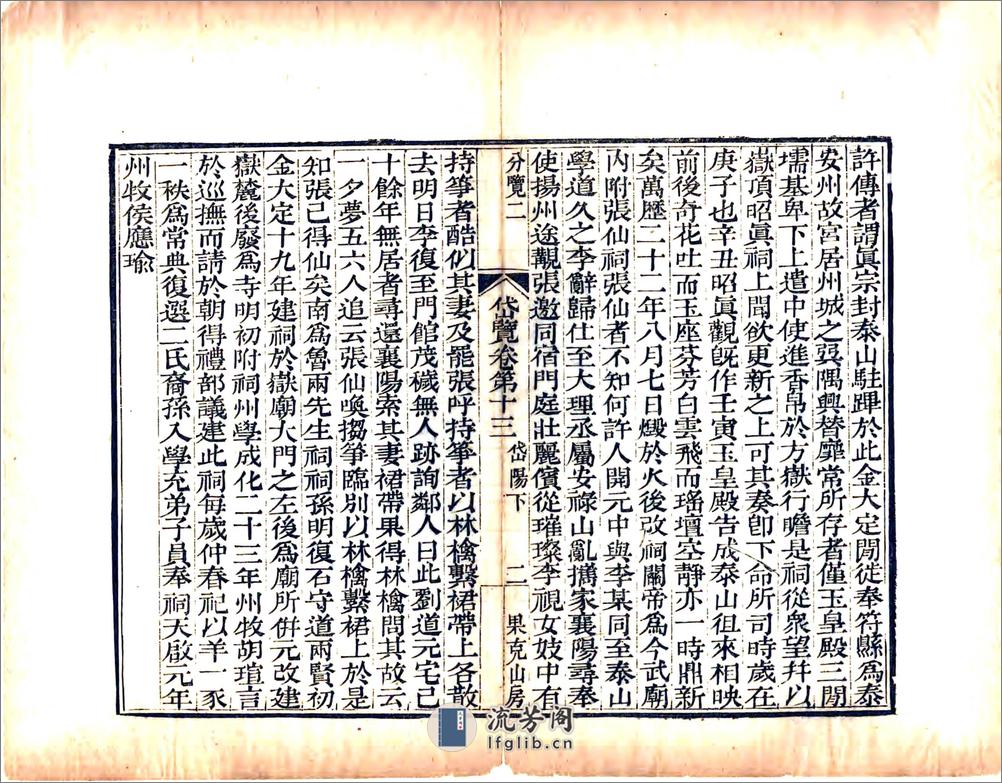 許傳者謂眞宗封泰山駐蹕於此金大定閒從奉符縣爲泰
安州故宮居州城之巽隅興替靡常所存者僅玉皇殿三閒
壖基卑下上遣中使進香帛於方嶽行瞻是祠從衆望幷以
嶽頂昭眞祠上聞欲更新之上可其奏卽下命所司時歲在
庚子也辛丑昭眞觀旣作壬寅玉皇殿告成泰山徂來相映
前後奇花吐而玉座芬芳白雲飛而瑤壇空靜亦一時鼎新
矣萬歷二十二年八月七日燬於火後改祠關帝爲今武廟
內附張仙祠張仙者不知何許人開元中與李某同至泰山
學道久之李辭歸仕至大理丞屬安祿山亂攜家襄陽尋奉
使揚州途覯張邀同宿門庭壯麗儐從璀璨李視女妓中有
分覽二
岱覽卷第十三 岱陽下 二 果克山房
持箏者酷似其妻及罷張呼持箏者以林檎繫裙帶上各散
去明日李復至門館茂穢無人跡詢鄰人曰此劉道元宅已
十餘年無居者尋還襄陽索其妻裙帶果得林檎問其故云
一夕夢五六人追云張仙喚搊箏臨別以林檎繫裙上於是
知張已得仙矣南爲魯兩先生祠祠孫明復石守道兩賢初
金大定十九年建祠於嶽廟大門之左後爲廟所倂元改建
嶽麓後廢爲寺明初附祠州學成化二十三年州牧胡瑄言
於巡撫而請於朝得禮部議建此祠每歲仲春祀以羊一豕
一秩爲常典復選二氏裔孫入學充弟子員奉祠天啟元年
州牧侯應瑜
流芳閣
lfglib.cn